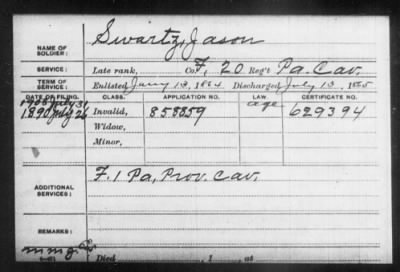 NAME OF SOLDIER: Swartz, Jason
SERVICE: Late rank, Co. F, 20 Reg't Pa. Cav.
TERM OF SERVICE: Enlisted Jany 13, 1864 Discharged July 13, 1865
DATE OF FILING. CLASS. APPLICATION NO. LAW. CERTIFICATE NO.
1908 July 31 age
1890 July 26 Invalid, 858859 629394
Widow,
Minor,
ADDITIONAL SERVICES: F. 1 Pa, Prov. Cav.
REMARKS:
Died , 1 , at